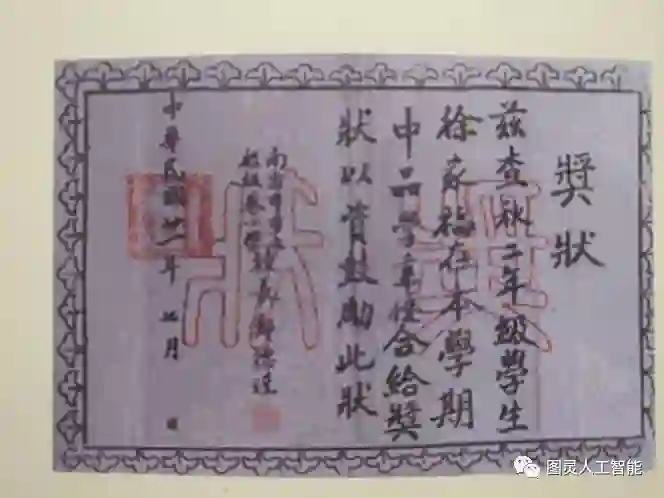 獎狀
茲查秋二年級學生
徐家福在本學期
中品學兼優合給獎
狀以資鼓勵此狀
校長鄭德
中華民國卅一年 月 日
獎狀
图灵人工智能